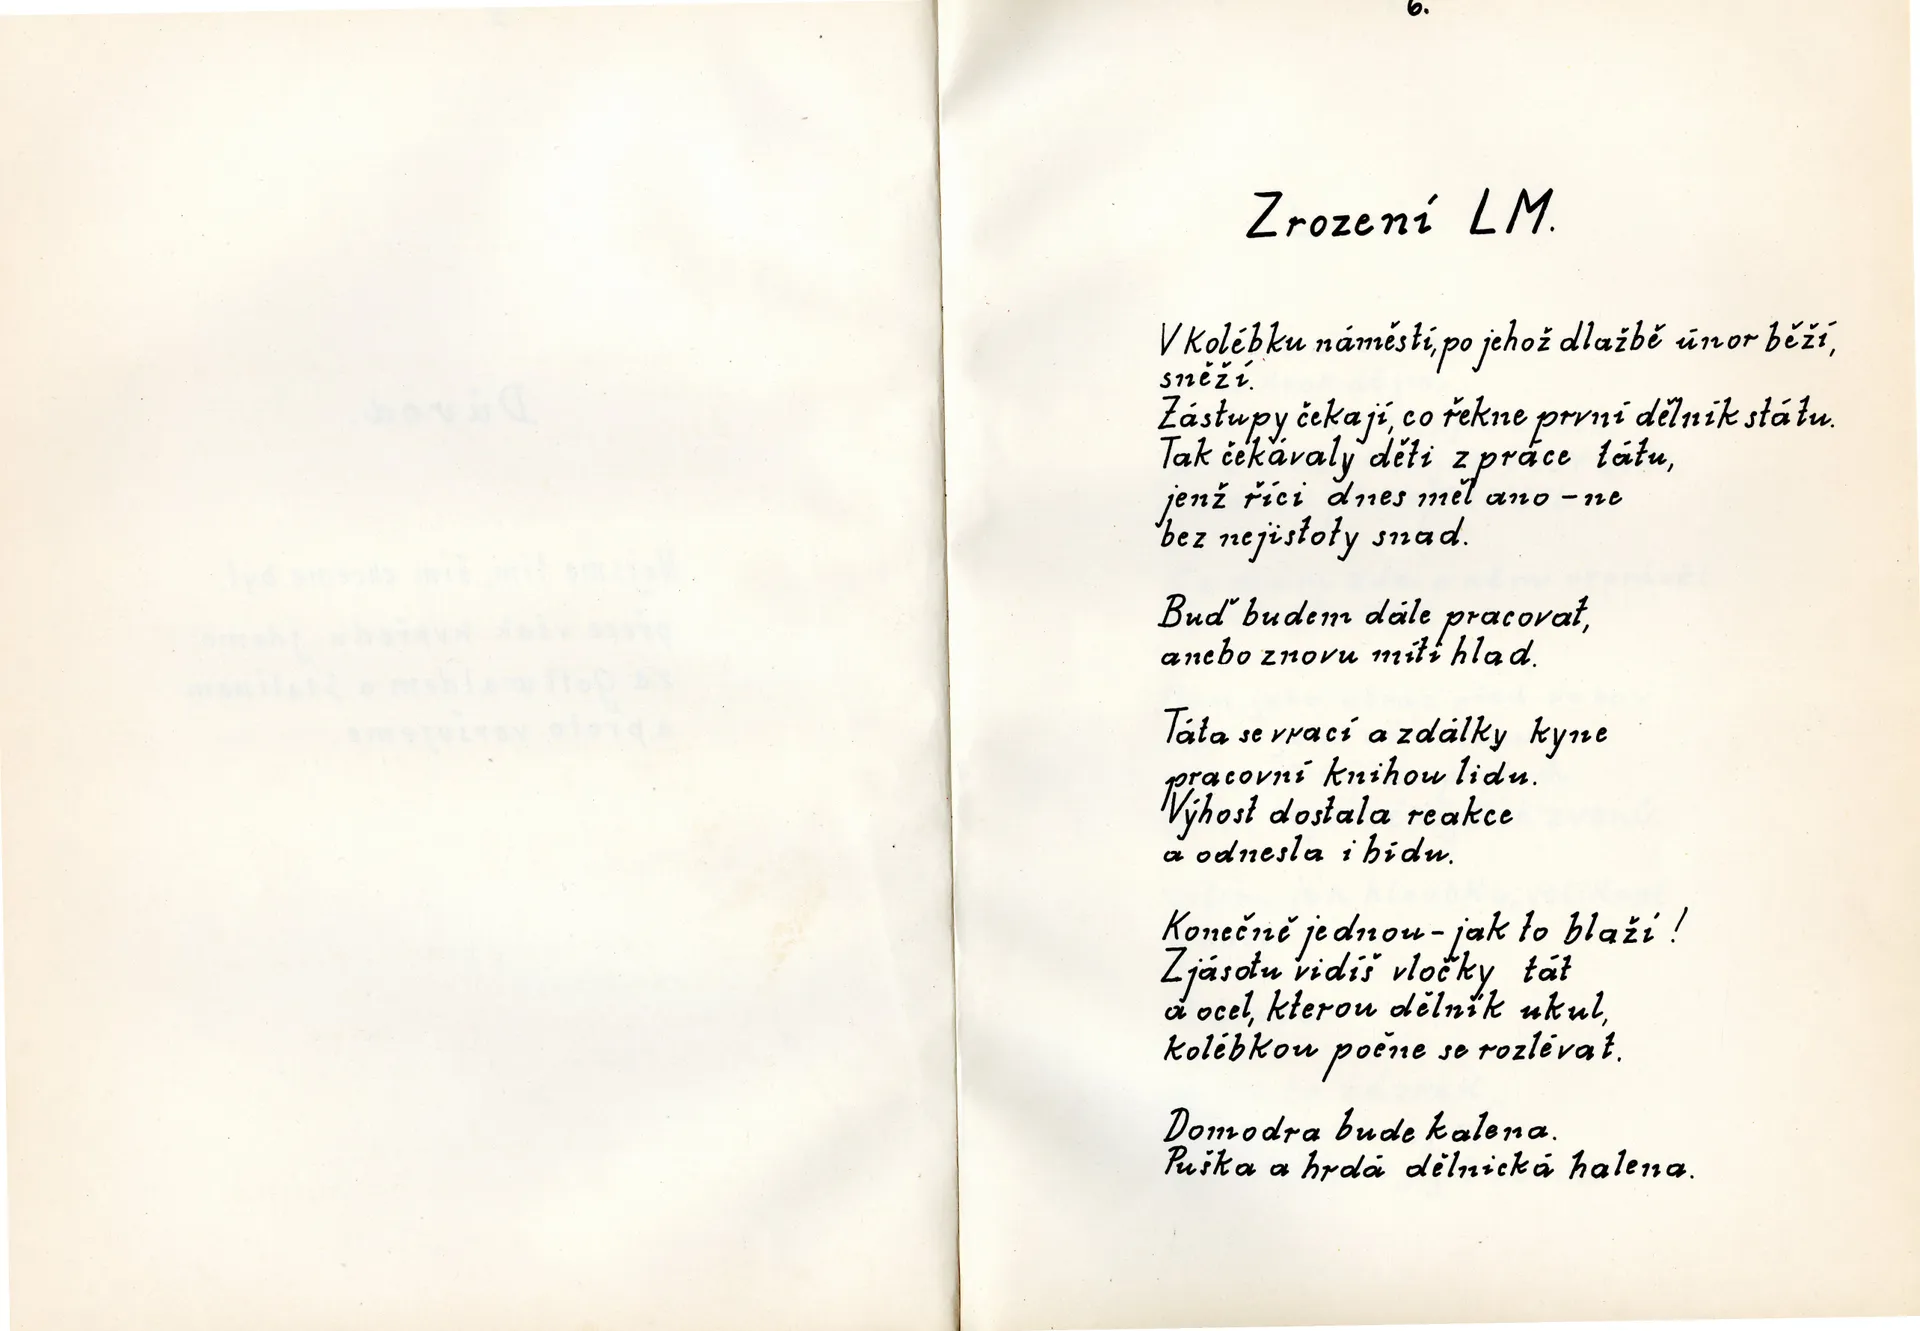 6.
Zrození LM.
V kolébku náměstí, po jehož dlažbě únor běží,
sněží.
Zástupy čekají, co řekne první dělník státu.
Tak čekávaly děti z práce tátu,
jenž říci dnes měl ano - ne
bez nejistoty snad.
Buď budem dále pracovat,
anebo znovu míti hlad.
Táta se vrací a zdálky kyne
pracovní knihou lidu.
Výhost dostala reakce
a odnesla i bídu.
Konečně jednou - jak to blaží!
Z jásotu vidíš vločky tát
a ocel, kterou dělník ukul,
kolébkou počne se rozlévat.
Domodra bude kalena.
Puška a hrdá dělnická halena.